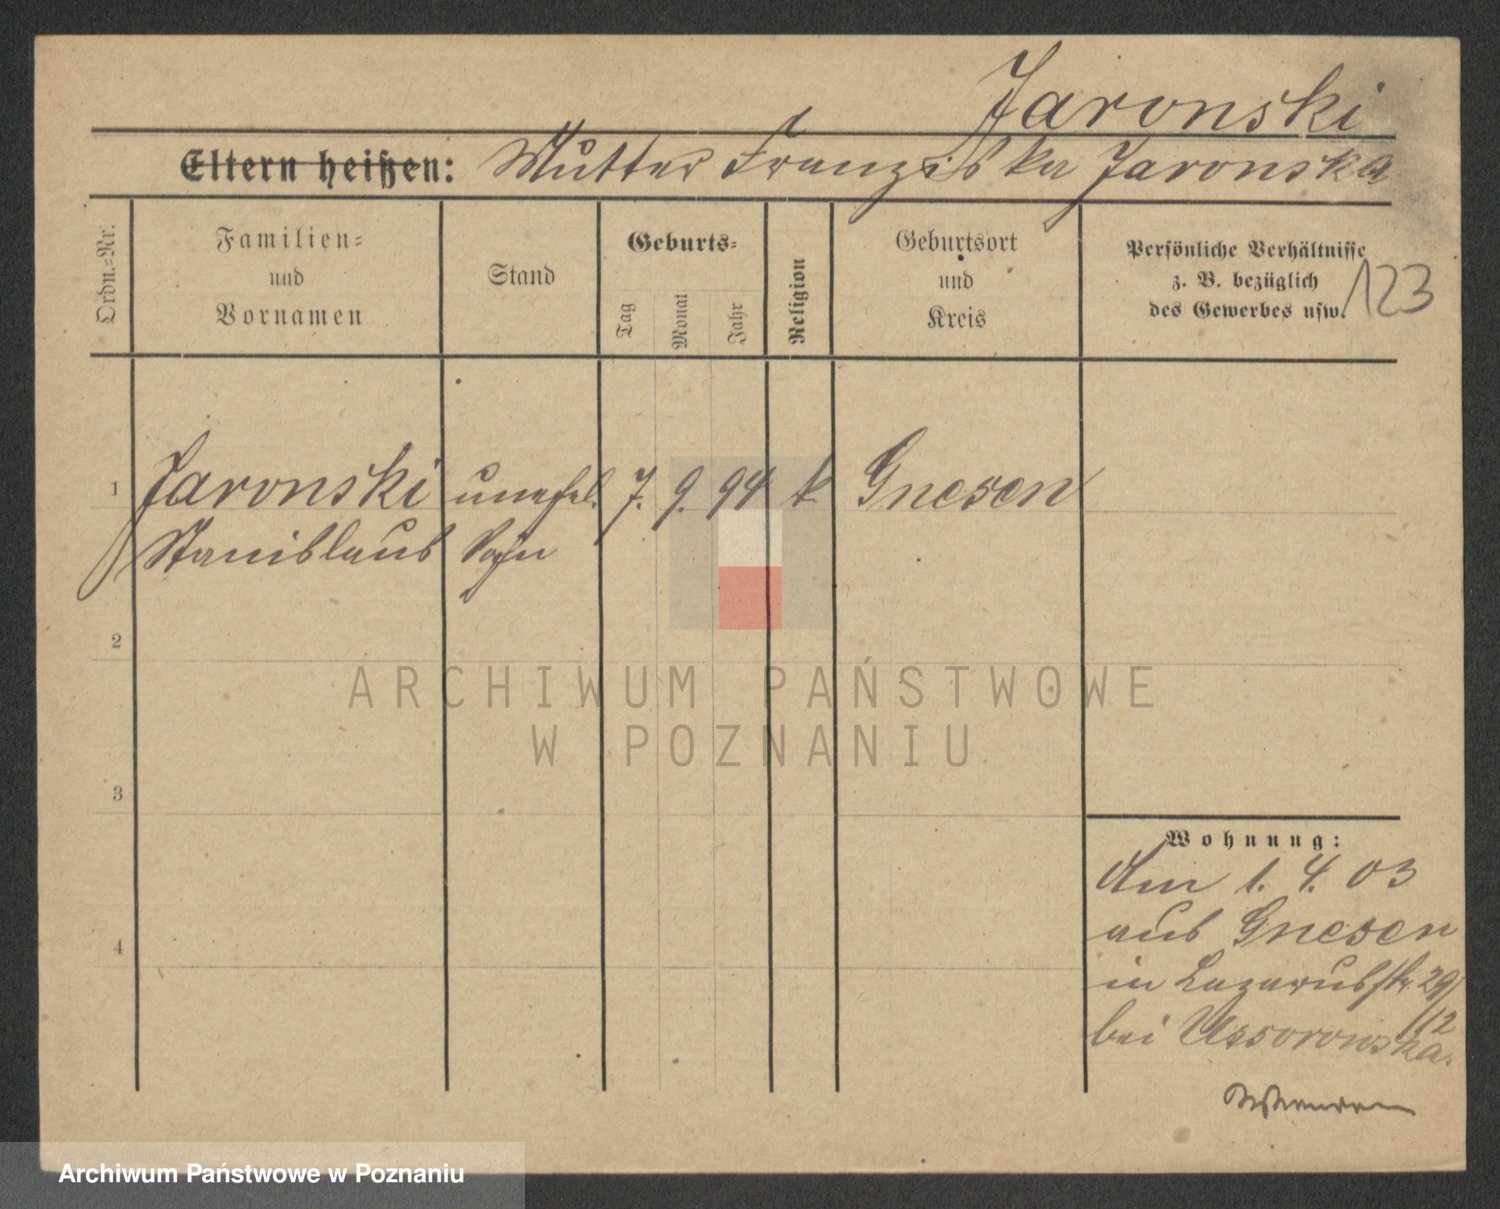 Jaronski
Eltern heißen: Mutter Franziska Jaronska
Ordn.=Nr.
Familien=
und
Vornamen
Stand
Geburts=
Tag
Monat
Jahr
Religion
Geburtsort
und
Kreis
Persönliche Verhältnisse
z. B. bezüglich
des Gewerbes usw.
123
1 Jaronski unehel. 7. 9. 94 k Gnesen
Stanislaus Sohn
2
3
4
Wohnung:
Am 1. 4. 03
aus Gnesen
in Lazarusstr. 29/
112
bei Ussorowska.
ARCHIWUM PAŃSTWOWE
W POZNANIU
Archiwum Państwowe w Poznaniu